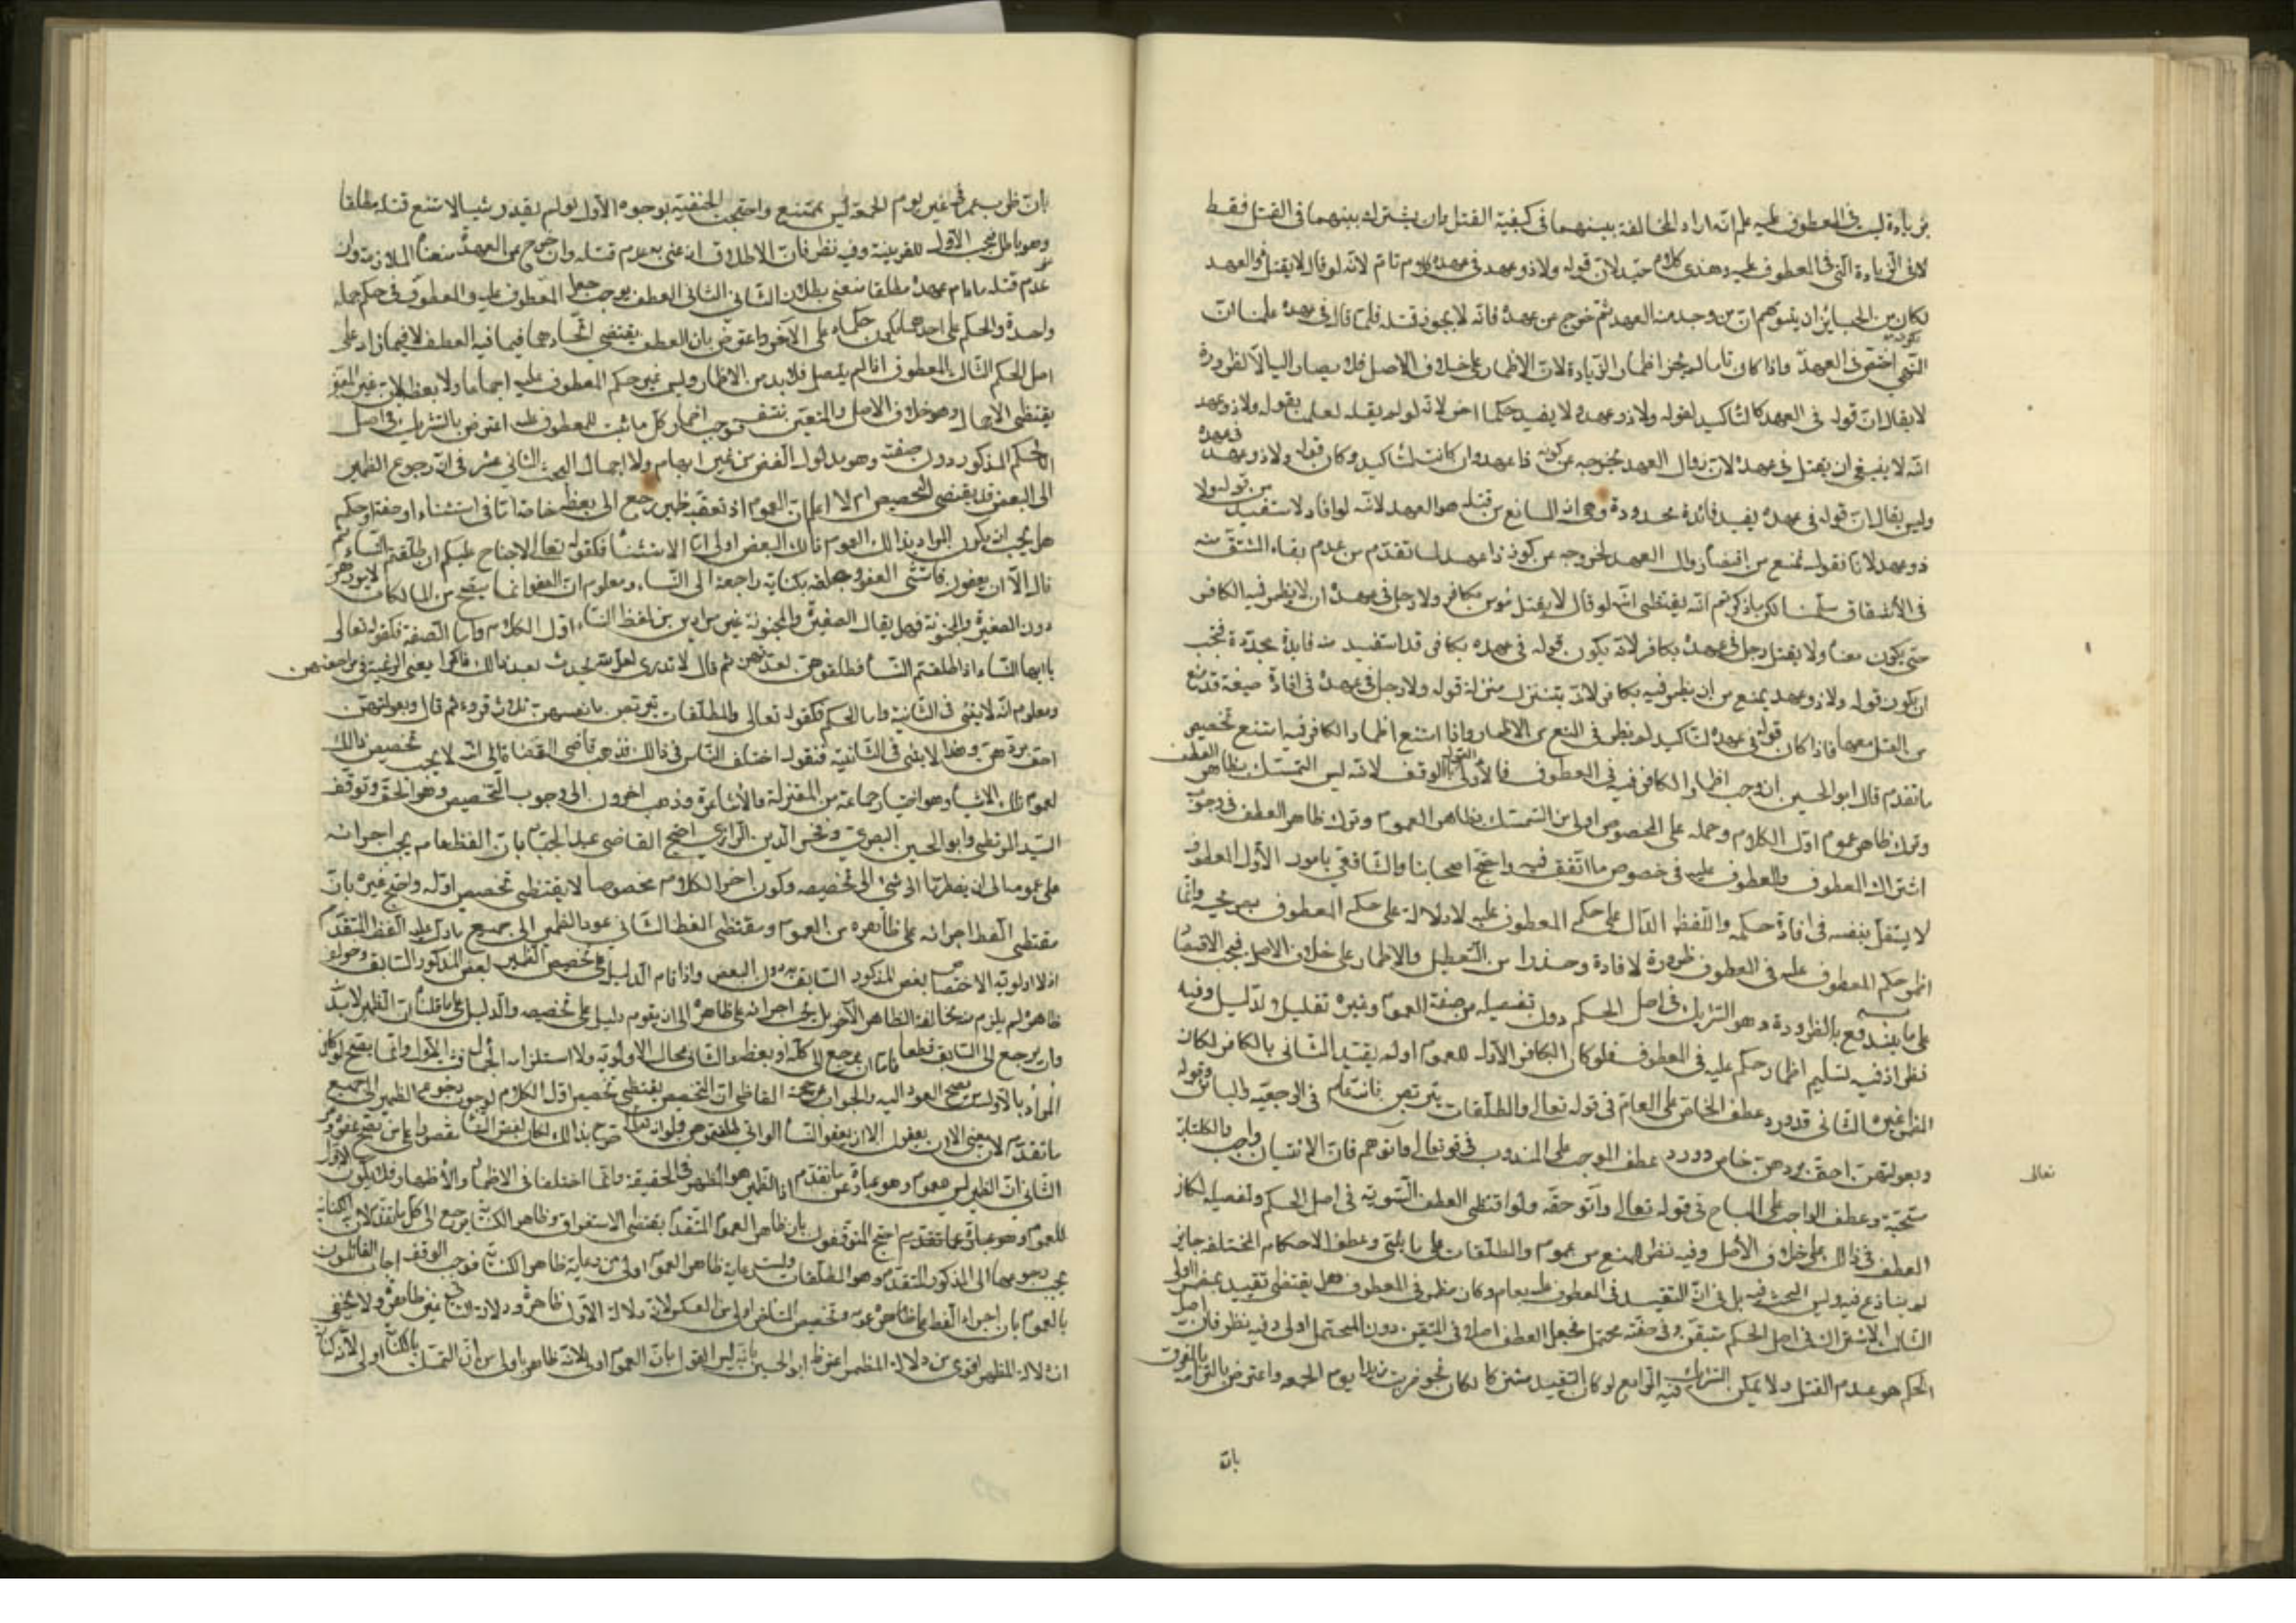 بزيادة ليست في المعطوف عليه علم انه اراد المخالفة بينهما في كيفية القتل وان يشترك بينهما في القتل فقط
لا في الزيادة التي في المعطوف عليه وهذي كلام جيد لان قوله ولا ذو عهد في عهده كلام تام لانه لو قال لا يقتل ذو العهد
لكان من الجايز ان يتوهم ان من وجد منه العهد ثم خرج عن عهده فانه لا يجوز قتله فلما قال في عهده علمنا ان
النهي اختص بكونه في العهد واذا كان تاما لم يجز اظمار الزيادة لان الاظمار على خلاف الاصل فلا يصار اليه الا لظرورة
لا يقال ان قوله في العهد كالتاكيد لقوله ولا ذو عهده لا يفيد حكما اخر لانه لو لم يقله لعلمنا بقوله ولا ذو عهد
انه لا ينبغي ان يقتل في عهده لان زوال العهد يخرجه عن كونه ذا عهد وان كانت للتاكيد وكان قوله ولا ذو عهد في عهده
وليس يقال ان قوله في عهده يفيد فائدة محدودة وهي ان المانع من قتله هو العهد لانه لو افاد لاستفيد من قوله ولا
ذو عهد لانا نقول نمنع من اقتضا زوال العهد لخروجه عن كونه ذا عهد لما تقدم من عدم بقاء المشتق منه
في الاشتقاق سلمنا لكن ما ذكرتم انه يقتظي انه لو قال لا يقتل مؤمن بكافر ولا رجل في عهده ان لا يظمر فيه الكافر
حتى يكون معناه ولا يقتل رجل في عهده بكافر لانه يكون قوله في عهده بكافر قد استفيد منه فايدة مجددة فيجب
ان يكون قوله ولا ذو عهد يمنع من ان يظمر فيه بكافر لانه يتنزل منزلة قوله ولا رجل في عهده في افادة صيغة قد منع
من القتل معها فاذا كان قوله في عهده للتاكيد لم يظهر في المنع من الاظمار واذا امتنع اظمار الكافر فيه امتنع تخصيص
ما تقدم قال ابو الحسين ان وجب اظمار الكافر فيه في المعطوف فالاولى القول بالوقف لانه ليس التمسك بظاهر العطف
وترك ظاهر عموم اول الكلام وحمله على الخصوص اولى من التمسك بظاهر العموم وترك ظاهر العطف في وجوب
اشتراك المعطوف والمعطوف عليه في خصوص ما اتفق فيه واحتج اصحابنا والشافعي بامور الاول المعطوف
لا يستقل بنفسه في افادة حكمه واللفظ الدال على حكم المعطوف عليه لا دلالة على حكم المعطوف بصريحه وانما
اظمر حكم المعطوف عليه في المعطوف ظرورة لافادة وحذرا من التعطيل والاظمار على خلاف الاصل فيجب الاقتصار
على ما يندفع به الظرورة وهو التشريك في اصل الحكم دون تفصيله من صفة العموم وغيره تقليلا للدليل وفيه
نظر اذ فيه تسليم اظمار حكم عليه في المعطوف فلو كان الكافر الاول للعموم او لم يقيد الثاني بالكافر لكان
المظمر غيره الثاني قد ورد عطف الخاص على العام في قوله تعالى والمطلقات يتربصن فانه عام في الرجعية والبائن وقوله
وبعولتهن احق بردهن خاص وورد عطف الموجب على المندوب في قوله تعالى واتوهم فان الاتيان واجب والكتابة
مستحبة وعطف الواجب على المباح في قوله تعالى واتو حقه ولو اقتظى العطف التسوية في اصل الحكم وتفصيله لكان
العطف في ذلك على خلاف الاصل وفيه نظر للمنع من عموم والمطلقات على ما ياتي وعطف الاحكام المختلفة جايز
لم ينازع فيه وليس البحث فيه بل في ان التقييد في المعطوف عليه بعام وكان مظمر في المعطوف هل يقتظي تقييد بعض الاول
الثالث الاشتراك في اصل الحكم متيقن وفي صفته محتمل فجعل العطف اصلا في المتيقن دون المحتمل اولى وفيه نظر فان اصل
الحكم هو عدم القتل ولا يمكن التشريك فيه الرابع لو كان التقييد مشتركا لكان نحو ضربت زيدا يوم الجمعة واعترض بالتزامه بالفرق
تعالى
بان
بان ظرب عمرو في غير يوم الجمعة ليس بممتنع واحتجت الحنفية بوجوه الاول لو لم يقدر شيا لامتنع قتله مطلقا
وهو باطل فيجب الاول للقرينة وفيه نظر فان الاطلاق ان عنى به عدم قتله وان خرج عن العهدة منعنا الملازمة وان
عدم قتله ما دام عهده مطلقا منعنى بطلان الثاني الثاني العطف يوجب جعل المعطوف عليه والمعطوف في حكم جملة
واحدة والحكم على احدهما يكون حكما على الاخر واعترض بان العطف يقتضي اتحادهما فيما فيه العطف لا فيما زاد على
اصل الحكم الثالث المعطوف اذا لم يستقل فلا بد من الاظمار وليس غير حكم المعطوف عليه اجماعا ولا بعظه لان غير المعين
يقتظي الاجمال وهو خلاف الاصل والمتعين منتف فوجب اظمار كل ما ثبت للمعطوف عليه اعترض بالتشريك في اصل
الحكم المذكور دون صفته وهو مدلول اللفظ من غير ابهام ولا اجمال البحث الثاني عشر في ان رجوع الظمير
الى البعض قد يقتضي التخصيص ام لا اعلم ان العموم اذ تعقبه ظمير رجع الى بعظه خاصة اما في استثناء او صفة او حكم
هل يجب ان يكون المراد بذلك العموم ذلك البعض اولى اما الاستثنا فكقوله تعالى لا جناح عليكم ان طلقتم النساء ثم
قال الا ان يعفون فاستثنى العفو وعلقه بكناية راجعة الى النساء ومعلوم ان العفو انما يصح من المالكات لامورهن
دون الصغيرة والمجنونة فهل يقال الصغيرة والمجنونة غير مرادين من لفظ النساء اول الكلام واما الصفة فكقوله تعالى
يا ايها النساء اذا طلقتم النساء فطلقوهن لعدتهن ثم قال لا تدري لعل الله يحدث بعد ذلك امرا يعني الرغبة في مراجعتهن
ومعلوم انه لا يتاتى في الثانية واما الحكم فكقوله تعالى والمطلقات يتربصن بانفسهن ثلاث قروء ثم قال وبعولتهن
احق بردهن وهذا لا يتاتى في الثانية فنقول اختلف الناس في ذلك فذهب قاضي القضاة الى انه لا يجب تخصيص ذلك
لعموم تلك الاشياء وهو اختيار جماعة من المعتزلة والاشاعرة وذهب اخرون الى وجوب التخصيص وهو الحق وتوقف
السيد المرتظى وابو الحسين البصري وفخر الدين الرازي احتج القاضي عبد الجبار بان اللفظ عام يجب اجرائه
على عمومه الى ان يضطرنا الى شئ الى تخصيصه وكون اخر الكلام مخصوصا لا يقتظي تخصيص اوله واحتج غيره بان
مقتظى اللفظ اجرائه على ظاهره من العموم ومقتظى اللفظ الثاني عود الظمير الى جميع ما دل عليه اللفظ المتقدم
اذ لا اولوية لاختصاص بعض المذكور السابق به دون البعض واذا قام الدليل على تخصيص الظمير ببعض المذكور السابق وخولف
ظاهره لم يلزم منه مخالفة الظاهر الاخر بل يجب اجرائه على ظاهره الى ان يقوم دليل على تخصيصه والدليل على ما قلناه ان الظمير لا بد
وان يرجع الى السابق قطعا فاما ان يرجع الى كله او بعظه والثاني محال لا اولوية ولا استلزامه الاجمال فتعين الاول وانما يصح لو كان
المراد بالاول من يصح العود اليه والجواب عن حجة القاظي ان التخصيص يقتظي تخصيص اول الكلام لوجوب رجوع الظمير الى جميع
ما تقدم لان معنى الا ان يعفون الا ان يعفو النساء اللواتي طلقتموهن ولو انه تعالى صرح بذلك لكان لفظ النساء مقصورا على من يصح عفوه
الثاني ان الظمير ليس عموم وهو عبارة عن ما تقدم اذا الظمير هو المظهر في الحقيقة وانما اختلفا في الاظمار والاظهار فلا يكون الاول
للعموم وهو عبارة عما تقدم احتج المتوقفون بان ظاهر العموم المتقدم يقتظي الاستغراق وظاهر الكناية يرجع الى كل ما تقدم لان الكناية
يجب رجوعها الى المذكور المتقدم وهو المطلقات وليس رعاية ظاهر العموم اولى من رعاية ظاهر الكناية فوجب الوقف اجاب القائلون
بالعموم بان اجراء اللفظ على ظاهره عموم وتخصيص المتاخر اولى من العكس لان دلالة الاول ظاهرة ودلالة الثاني غير ظاهرة ولا يخفى
ان دلالة المظهر اقوى من دلالة المظمر اعترض ابو الحسين بانه ليس القول بان العموم اولى لانه ظاهر اولى من ان التمسك بالكناية اولى لان كناية